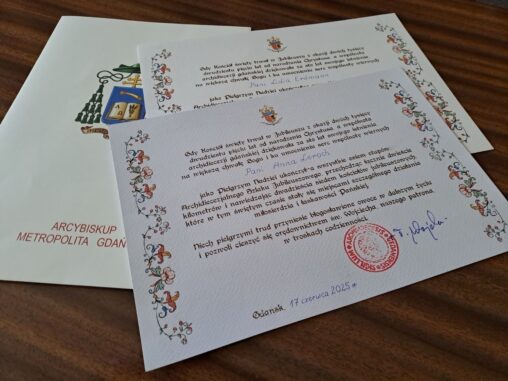 ARCYBISKUP
METROPOLITA GDAŃ
Gdy Kościół święty trwał w Jubileuszu z okazji dwóch tysięcy
dwudziestu pięciu lat od narodzenia Chrystusa a wspólnota
archidiecezji gdańskiej dziękowała za sto lat swojego istnienia
na większą chwałę Boga i ku umocnieniu serc wspólnoty wiernych
Pani Lidia Erdmann
jako Pielgrzym Nadziei ukończył-a
Archidiecezjalnego
Gdy Kościół święty trwał w Jubileuszu z okazji dwóch tysięcy
dwudziestu pięciu lat od narodzenia Chrystusa a wspólnota
archidiecezji gdańskiej dziękowała za sto lat swojego istnienia
na większą chwałę Boga i ku umocnieniu serc wspólnoty wiernych
Pani Anna Lerach
jako Pielgrzym Nadziei ukończył-a wszystkie osiem etapów
Archidiecezjalnego Szlaku Jubileuszowego przechodząc łącznie dwieście
kilometrów i nawiedzając dwadzieścia siedem kościołów jubileuszowych,
które w tym świętym czasie stały się miejscami szczególnego działania
miłosierdzia i łaskawości Pańskiej.
Niech pielgrzymi trud przyniesie błogosławione owoce w dalszym życiu
i pozwoli cieszyć się orędownictwem św. Wojciecha, naszego patrona
w troskach codzienności.
Gdańsk, 17 czerwca 2025 r.